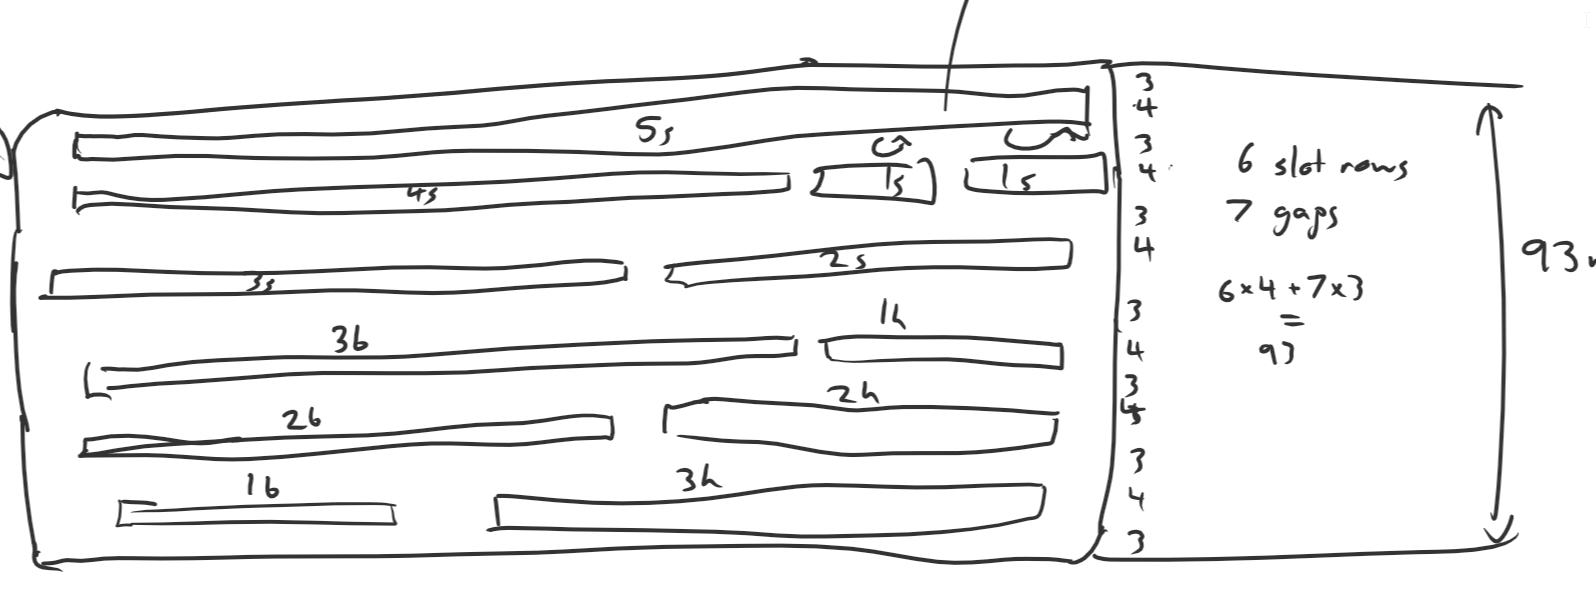 5s
4s
1s
1s
3s
2s
3b
1h
2b
2h
1b
3h
3
4
3
4
3
4
3
4
3
4
3
4
3
6 slot rows
7 gaps
6×4 + 7×3
=
93
93